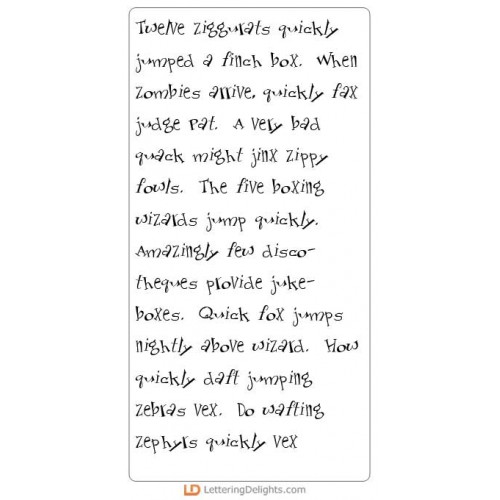 Twelve ziggurats quickly
jumped a finch box. When
zombies arrive, quickly fax
judge Pat. A very bad
quack might jinx zippy
fowls. The five boxing
wizards jump quickly.
Amazingly few disco-
theques provide juke-
boxes. Quick fox jumps
nightly above wizard. How
quickly daft jumping
zebras vex. Do wafting
zephyrs quickly vex
LD LetteringDelights.com